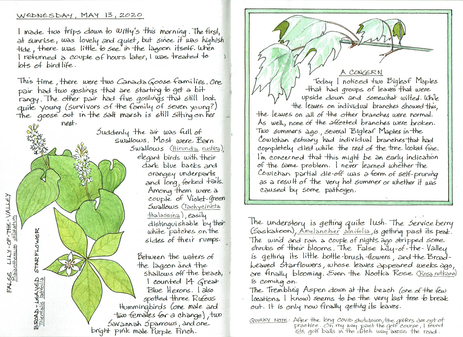 WEDNESDAY, MAY 13, 2020
I made two trips down to Witty's this morning. The first,
at sunrise, was lovely and quiet, but since it was highish
tide, there was little to see in the lagoon itself. When
I returned a couple of hours later, I was treated to
lots of bird life.
This time, there were two Canada Goose families. One
pair had two goslings that are starting to get a bit
rangy. The other pair had five goslings that still look
quite young (survivors of the family of seven young?)
The goose out in the salt marsh is still sitting on her
nest.
Suddenly the air was full of
swallows. Most were Barn
Swallows (Hirundo rustica),
elegant birds with their
dark blue backs and
orangey underparts
and long, forked tails.
Among them were a
couple of Violet-green
Swallows (Tachycineta
thalassina), easily
distinguishable by their
white patches on the
sides of their rumps.
Between the waters of
the lagoon and the
shallows off the beach,
I counted 14 Great
Blue Herons. I also
spotted three Rufous
Hummingbirds (one male and
two females for a change), two
Savannah Sparrows, and one
bright pink male Purple Finch.
FALSE LILY-OF-THE-VALLEY
Maianthemum dilatatum
BROAD-LEAVED STARFLOWER
Trientalis latifolia
A CONCERN
Today I noticed two Bigleaf Maples
that had groups of leaves that were
upside down and somewhat wilted. While
the leaves on individual branches showed this,
the leaves on all of the other branches were normal.
As well, none of the affected branches were broken.
Two summers ago, several Bigleaf Maples in the
Cowichan estuary had individual branches that had
completely died while the rest of the tree looked fine.
I'm concerned that this might be an early indication
of the same problem. I never learned whether the
Cowichan partial die-off was a form of self-pruning
as a result of the very hot summer or whether it was
caused by some pathogen.
The understory is getting quite lush. The Serviceberry
(Saskatoon), Amelanchier alnifolia, is getting past its peak.
The wind and rain a couple of nights ago stripped some
shrubs of their blooms. The False Lily-of-the-Valley
is getting its little bottle-brush flowers, and the Broad-
Leaved Starflowers, whose leaves appeared weeks ago,
are finally blooming. Even the Nootka Rose (Rosa nutkana)
is coming on.
The Trembling Aspen down at the beach (one of the few
locations I know) seems to be the very last tree to break
out. It is only now finally getting its leaves.
QUIRKY NOTE: After the long COVID shutdown, the golfers are out of
practice. On my way past the golf course, I found
six golf balls in the ditch way across the road.